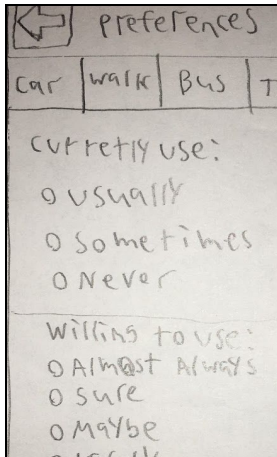 Preferences
Car Walk Bus T
Curretly use:
Usually
Sometimes
Never
Willing to use:
Almost Always
Sure
Maybe